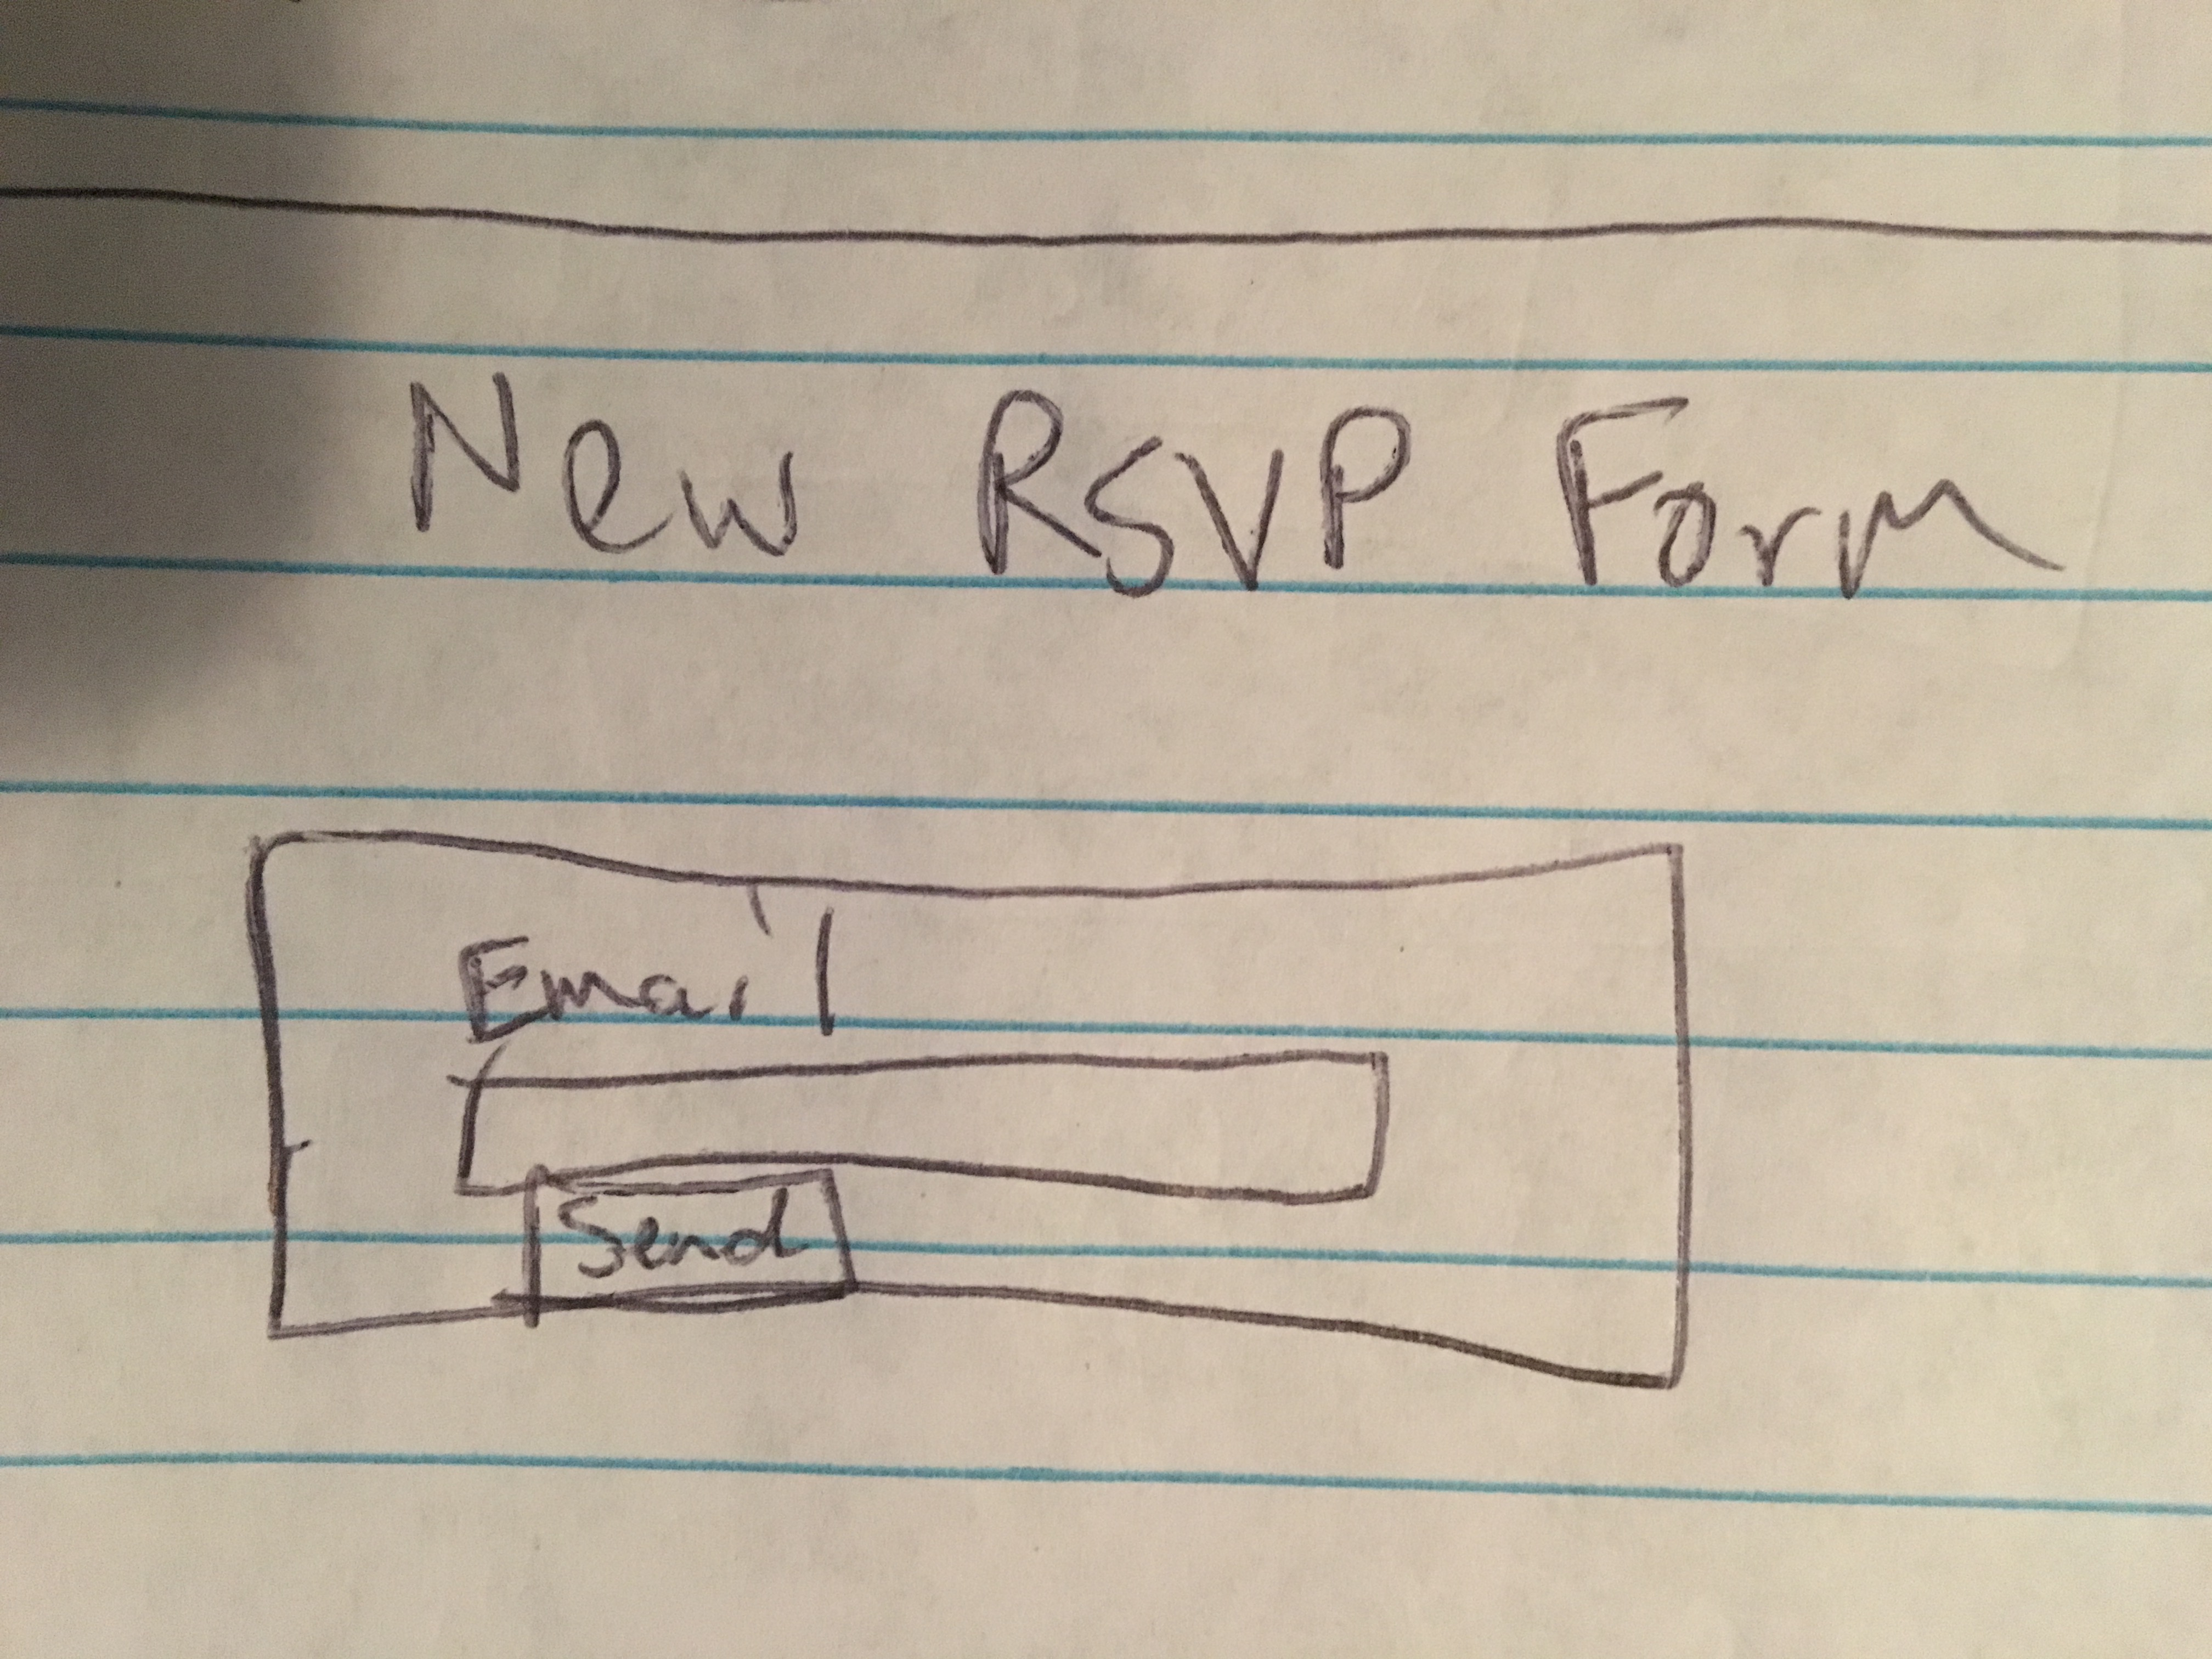 New RSVP Form
Email
Send